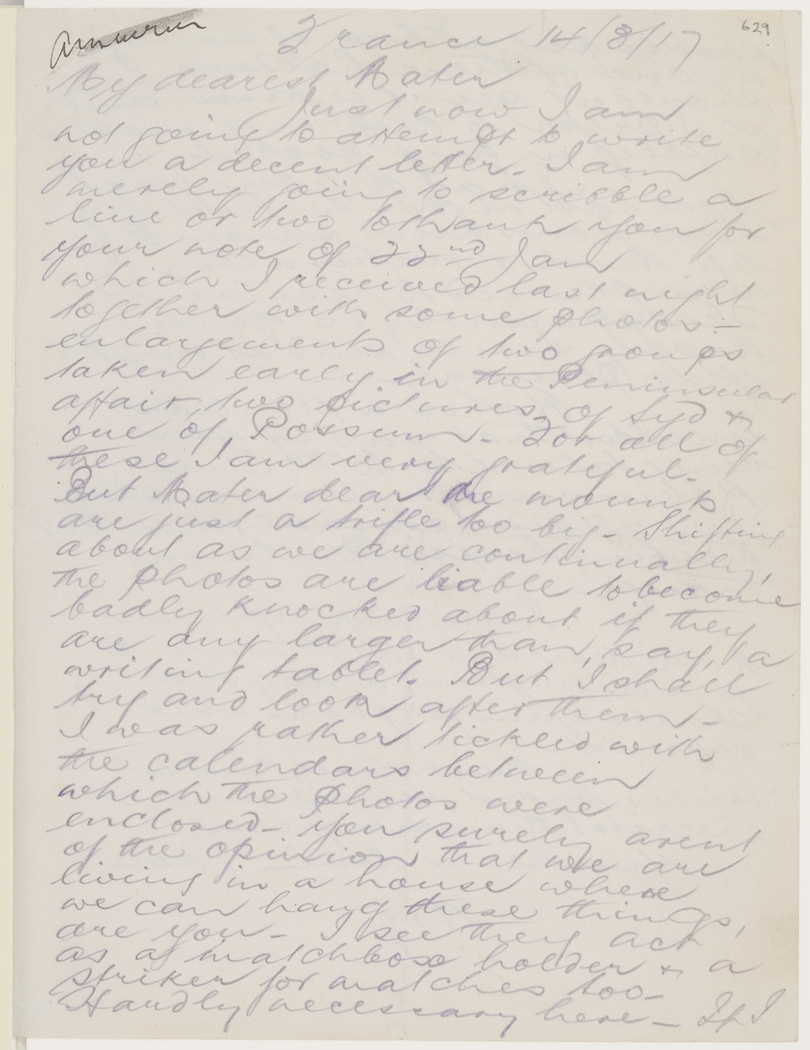 629
France 14/3/17
My dearest Mater
Just now I am
not going to attempt to write
you a decent letter - I am
merely going to scribble a
line or two to thank you for
your note of 22nd Jan
which I received last night
together with some photos -
enlargements of two groups
taken early in the Peninsular
affair, two pictures of Syd &
one of Possum. For all of
these I am very grateful.
But Mater dear the mounts
are just a trifle too big - Shifting
about as we are continually,
the photos are liable to become
badly knocked about if they
are any larger than, say, a
writing tablet. But I shall
try and look after them -
I was rather tickled with
the calendars between
which the photos were
enclosed - you surely arent
of the opinion that we are
living in a house where
we can hang these things,
are you - I see they act
as a matchbox holder & a
striker for matches too -
Hardly necessary here - If I